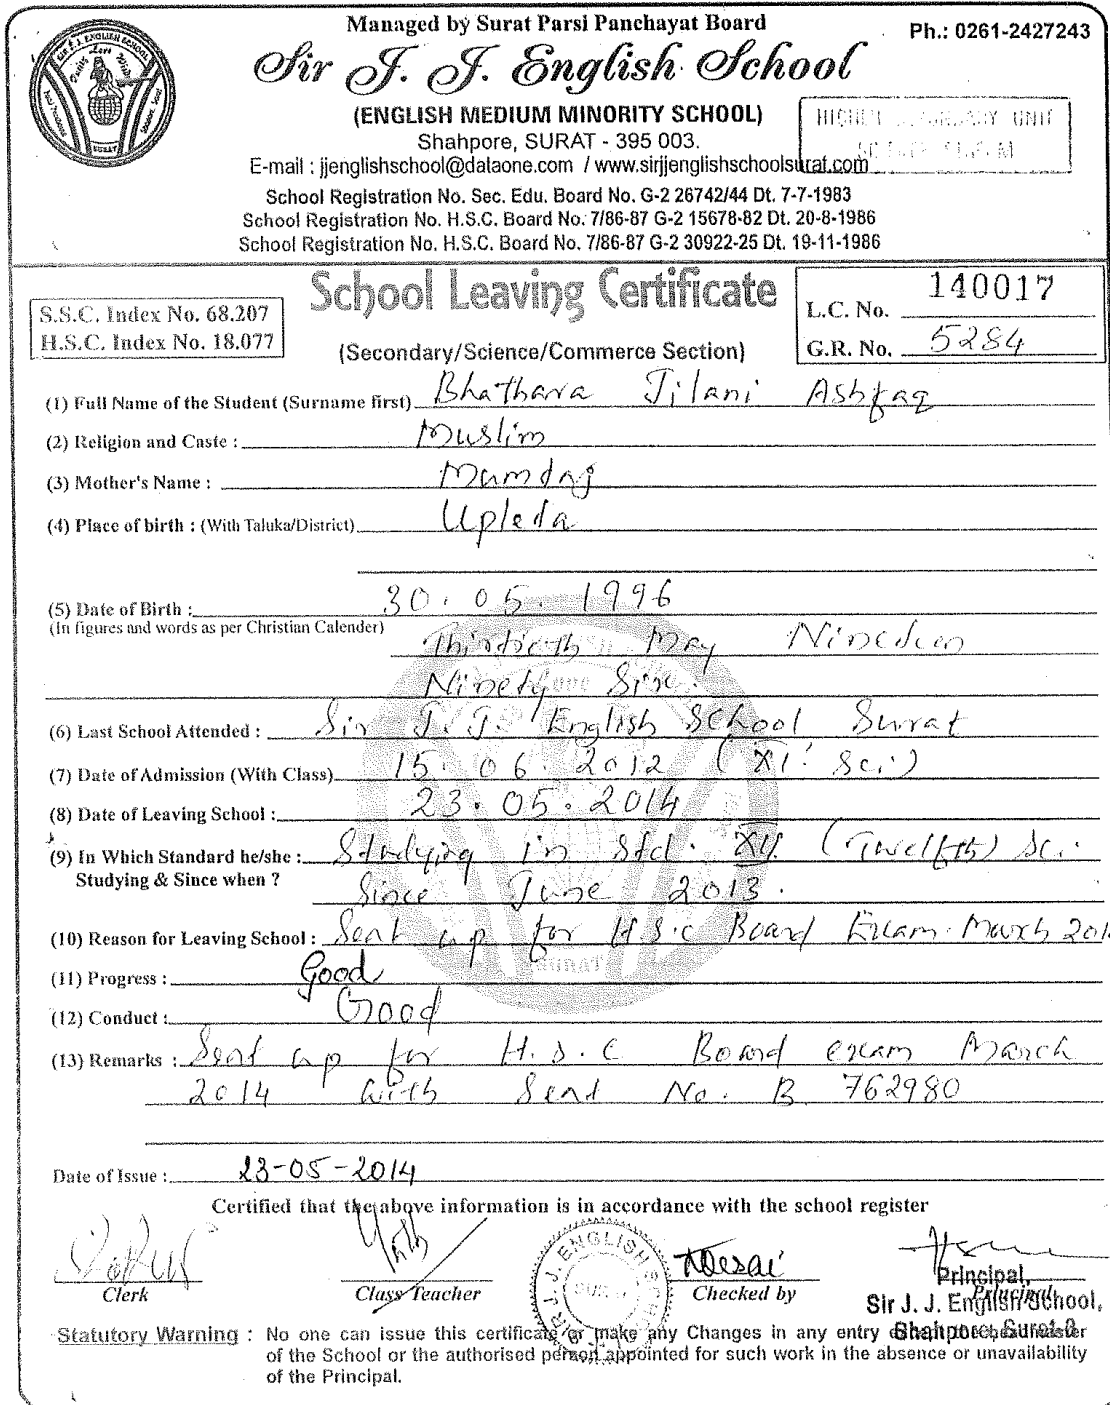 Managed by Surat Parsi Panchayat Board
Ph.: 0261-2427243
Sir J. J. English School
(ENGLISH MEDIUM MINORITY SCHOOL)
Shahpore, SURAT - 395 003.
E-mail : jjenglishschool@dataone.com / www.sirjjenglishschoolsurat.com
School Registration No. Sec. Edu. Board No. G-2 26742/44 Dt. 7-7-1983
School Registration No. H.S.C. Board No. 7/86-87 G-2 15678-82 Dt. 20-8-1986
School Registration No. H.S.C. Board No. 7/86-87 G-2 30922-25 Dt. 19-11-1986
School Leaving Certificate
S.S.C. Index No. 68.207
H.S.C. Index No. 18.077
(Secondary/Science/Commerce Section)
L.C. No. 140017
G.R. No. 5284
(1) Full Name of the Student (Surname first) Bhathara Jilani Ashfaq
(2) Religion and Caste : Muslim
(3) Mother's Name : Mumtaj
(4) Place of birth : (With Taluka/District) Upleta
(5) Date of Birth : 30. 05. 1996
(In figures and words as per Christian Calender)
Thirtieth May Nineteen
Ninety Six.
(6) Last School Attended : Sir J. J. English School Surat
(7) Date of Admission (With Class) 15. 06. 2012 (XI. Sci.)
(8) Date of Leaving School : 23. 05. 2014
(9) In Which Standard he/she : Studying in Std. XII (Twelfth) Sci.
Studying & Since when ? Since June 2013.
(10) Reason for Leaving School : Sent up for H.S.C Board Exam. March 201
(11) Progress : Good
(12) Conduct : Good
(13) Remarks : Sent up for H.S.C Board exam March
2014 with Seat No. B 762980
Date of Issue : 23-05-2014
Certified that the above information is in accordance with the school register
Clerk
Class Teacher
Checked by
Principal
Principal,
Sir J. J. English School,
Shahpore, Surat-3.
Statutory Warning : No one can issue this certificate or make any Changes in any entry
of the School or the authorised person appointed for such work in the absence or unavailability
of the Principal.